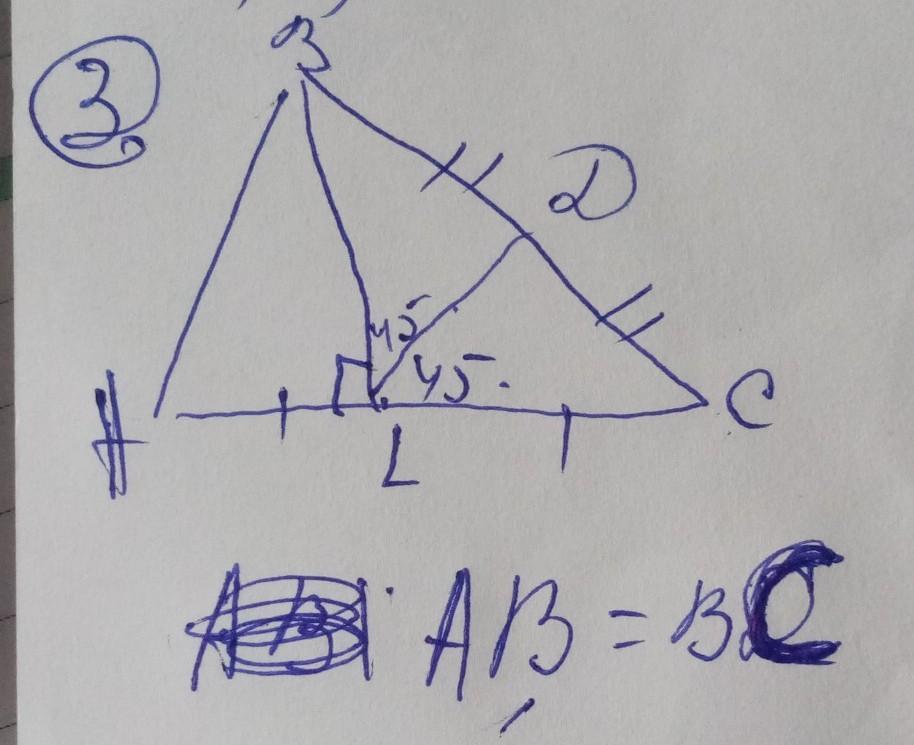 3.
B
D
45
45.
A
L
C
AB = BC